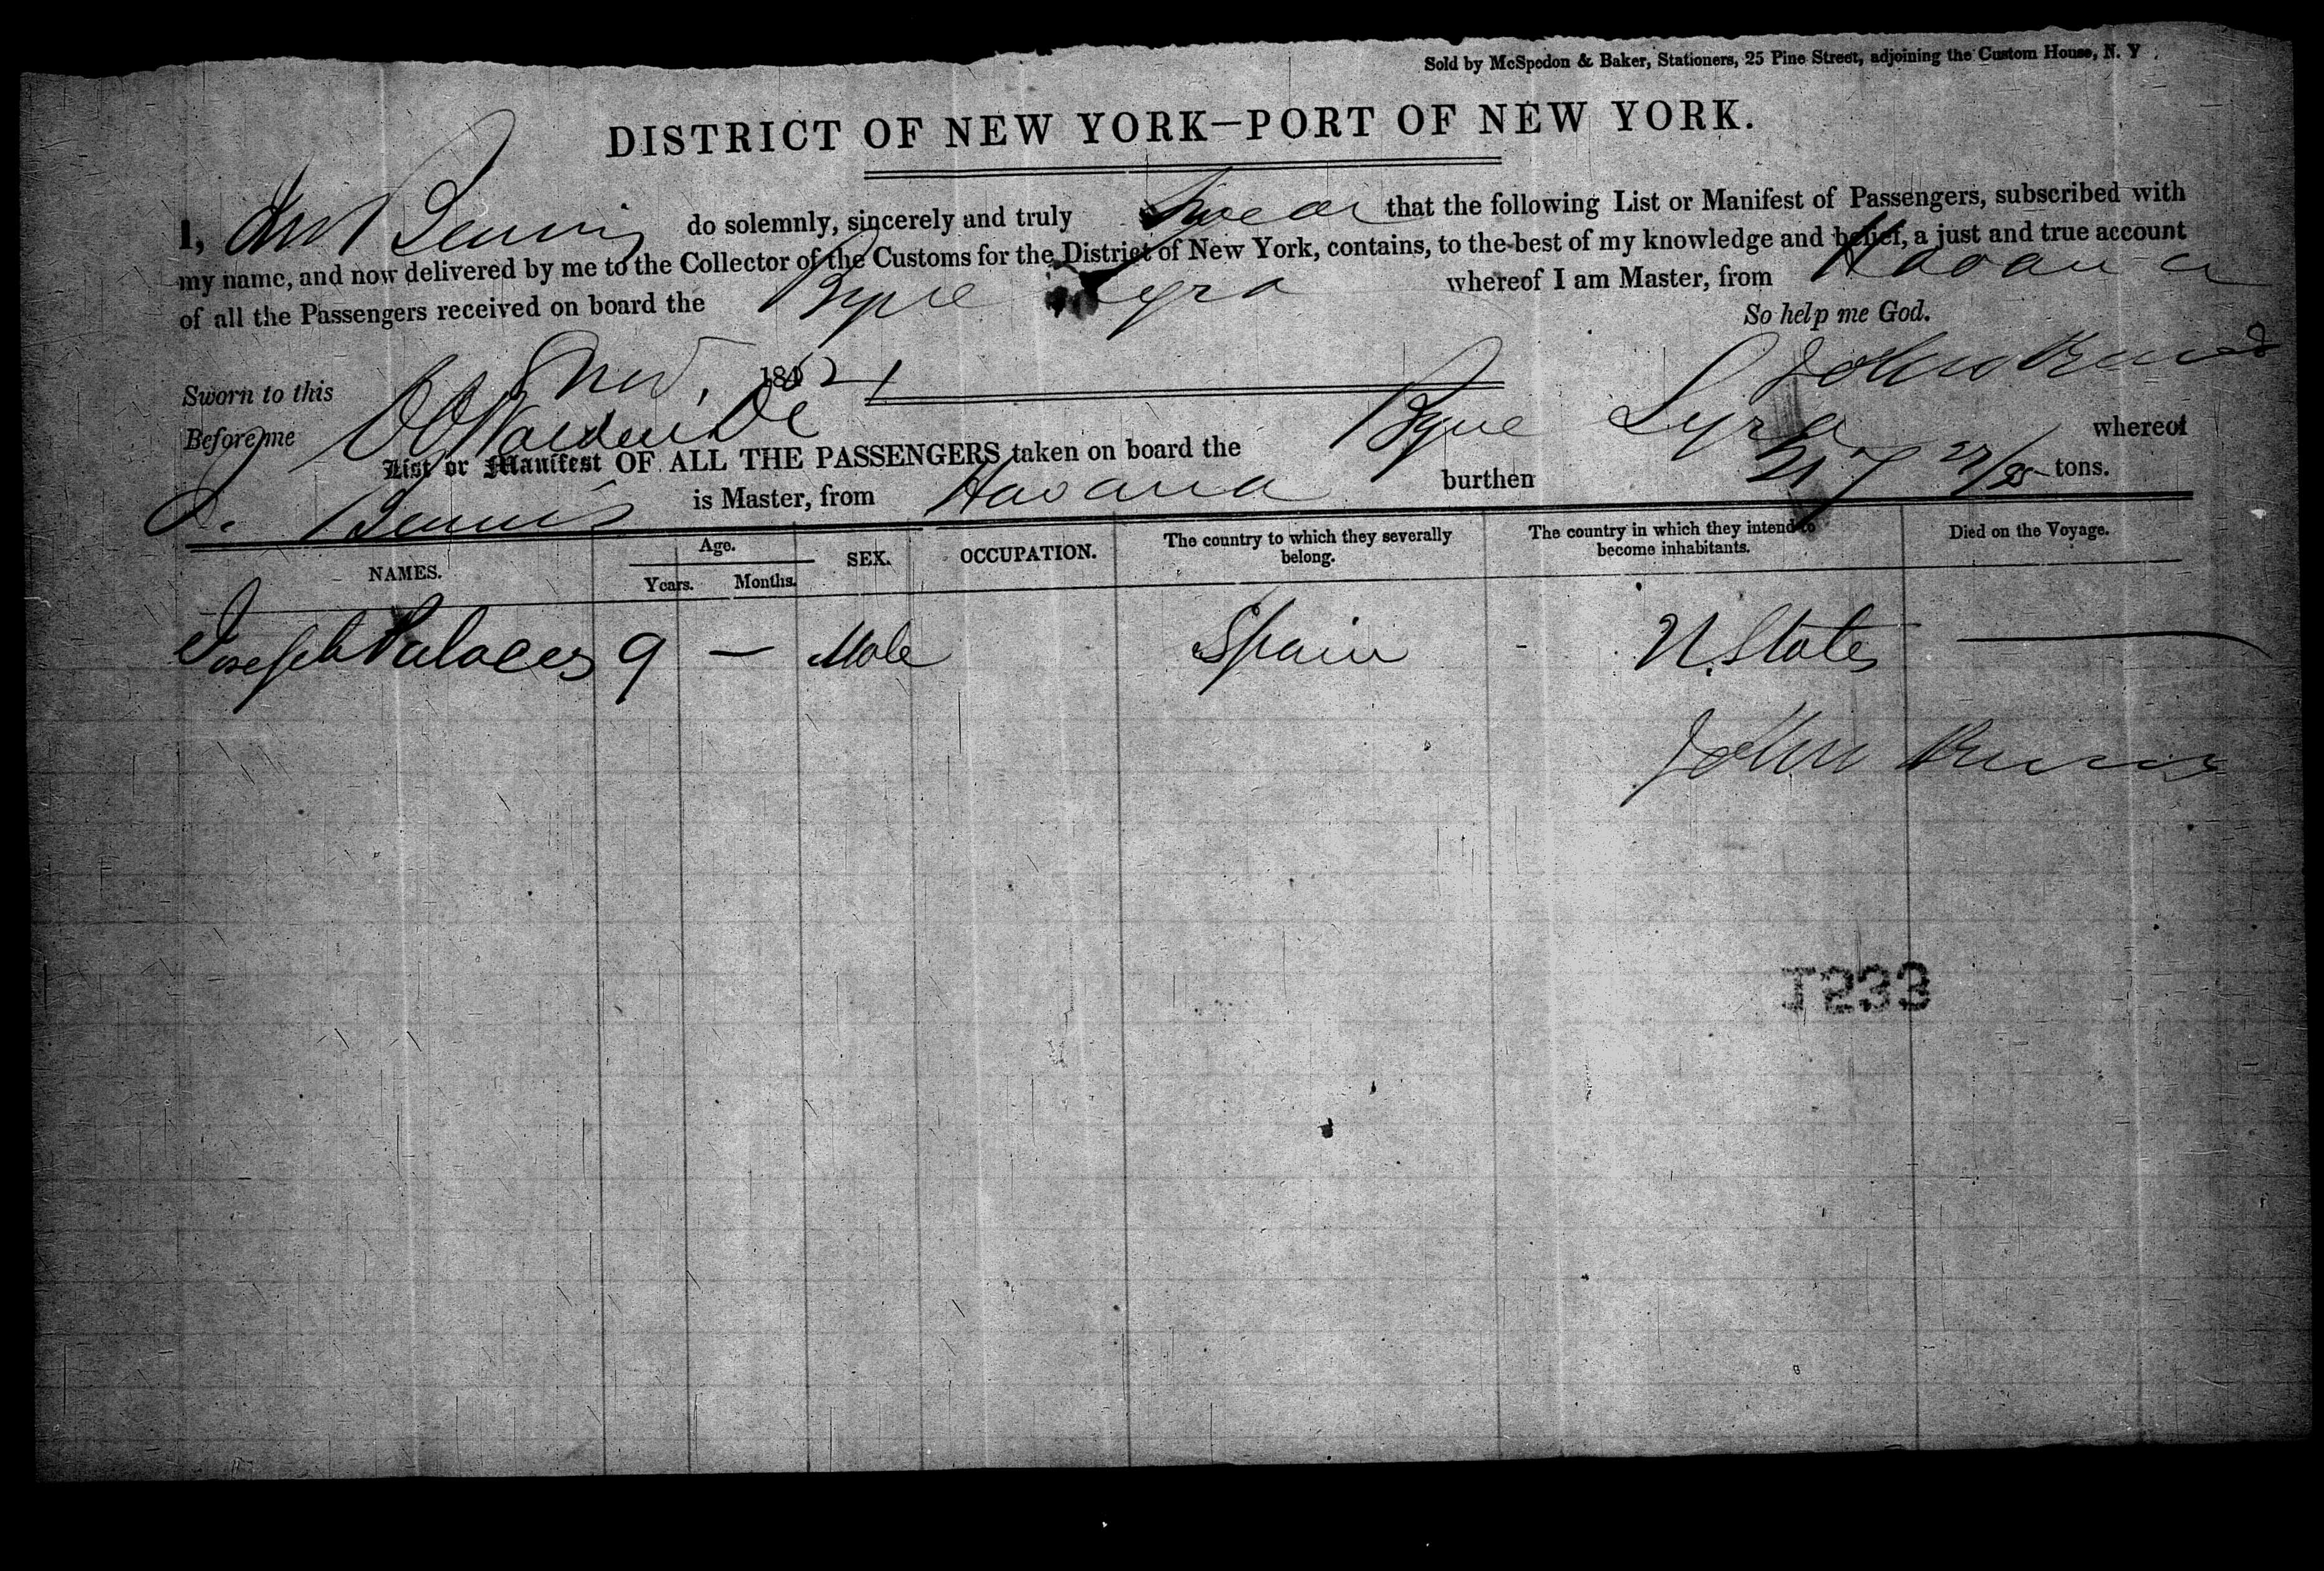 Sold by McSpedon & Baker, Stationers, 25 Pine Street, adjoining the Custom House, N. Y.
DISTRICT OF NEW YORK—PORT OF NEW YORK.
I, do solemnly, sincerely and truly Swear that the following List or Manifest of Passengers, subscribed with
my name, and now delivered by me to the Collector of the Customs for the District of New York, contains, to the best of my knowledge and belief, a just and true account
of all the Passengers received on board the Lyra whereof I am Master, from Havana
So help me God.
Sworn to this 184 John
Before me
List or Manifest OF ALL THE PASSENGERS taken on board the Lyra whereof
J. is Master, from Havana burthen 217 27/95 tons.
NAMES. Age. Years. Months. SEX. OCCUPATION. The country to which they severally belong. The country in which they intend to become inhabitants. Died on the Voyage.
Joseph Palaces 9 — Male Spain U. States —
John
1233